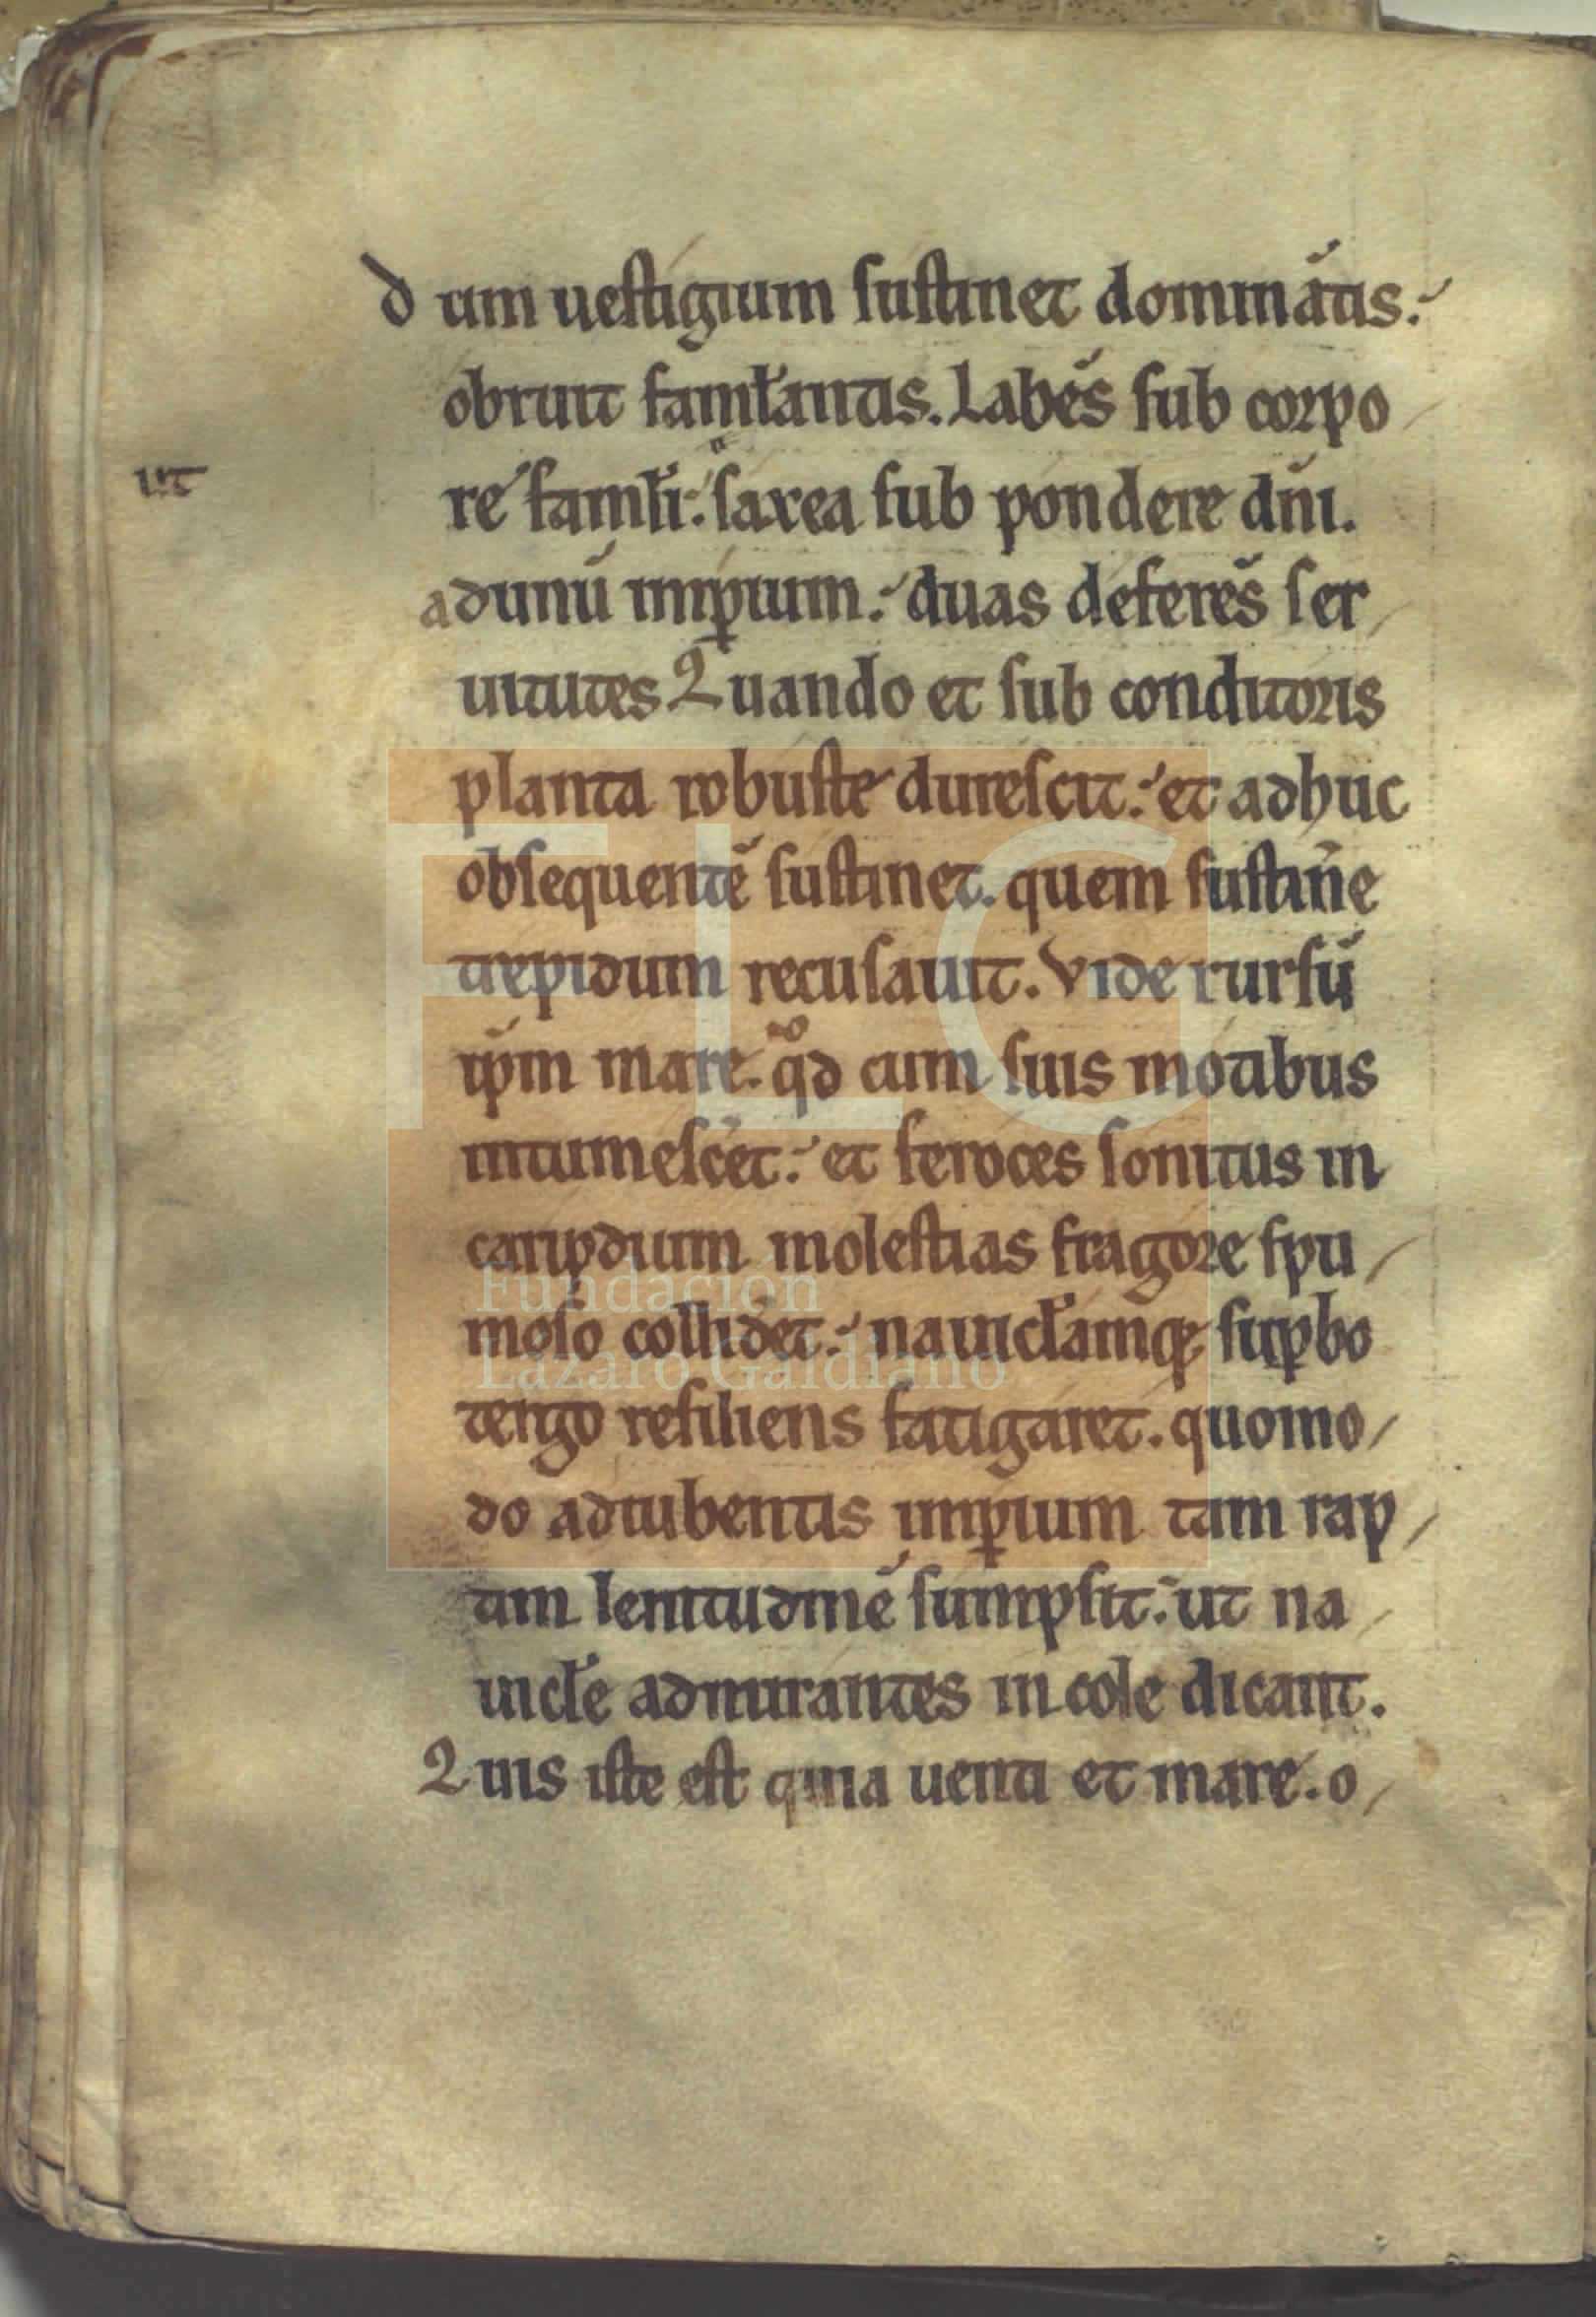 dum uestigium sustinet domināťis.
obruit famłantis. Labēs sub corpo
ut
re famłi: saxea sub pondere dn̄i.
adunū imꝑium: duas deferēs ser
uitutes Quando et sub conditoris
planta robuste durescit: et adhuc
obsequentē sustinet. quem sustin̄e
trepidum recusauit. Vide rursū
ip̄m mare. qͦd cum suis motibus
intumesc̄et: et feroces sonitus in
caripdium molestias fragore spu
moso collid̄et: nauicłamqꝫ suꝑbo
tergo resiliens fatigaret. quomo
do adiubentis imꝑium tam rap
tim lentitudinē sumpsit: ut na
uicłe admirantes incole dicant.
Quis iste est quia uenti et mare. o
FLG
Fundación
Lázaro Galdiano